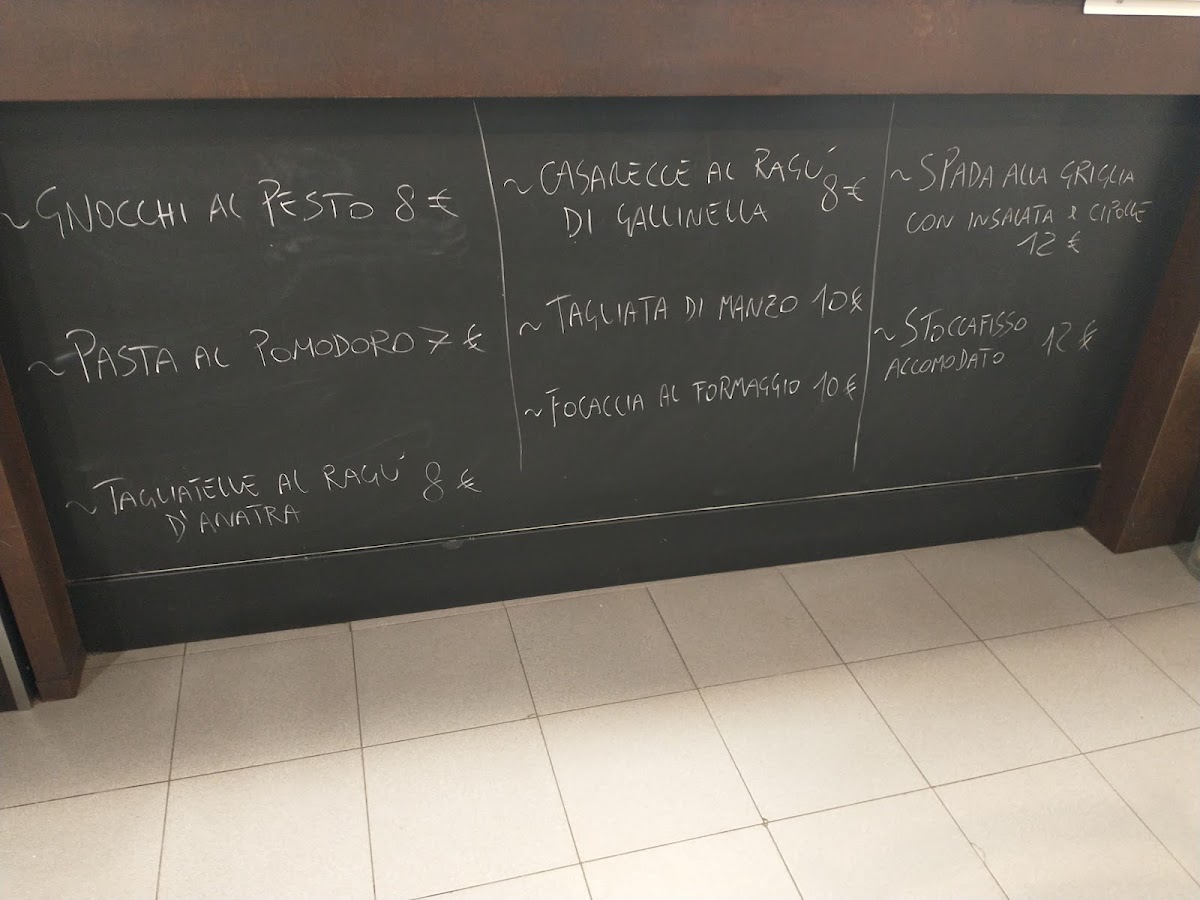 ~ GNOCCHI AL PESTO 8 €
~ PASTA AL POMODORO 7 €
~ TAGLIATELLE AL RAGU' 8 €
D'ANATRA
~ CASARECCE AL RAGU' 8 €
DI GALLINELLA
~ TAGLIATA DI MANZO 10 €
~ FOCACCIA AL FORMAGGIO 10 €
~ SPADA ALLA GRIGLIA
CON INSALATA E CIPOLLE
12 €
~ STOCCAFISSO 12 €
ACCOMODATO